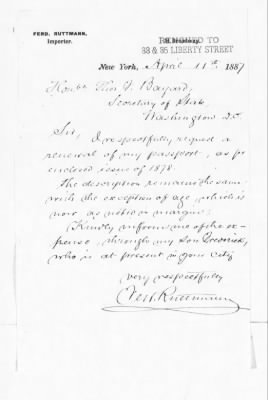 FERD. RUTTMANN,
Importer.
Broadway,
REMOVED TO
33 & 35 LIBERTY STREET
New York, April 11th 1887
Honble Thos F. Bayard,
Secretary of State
Washington D.C.
Sir,
I respectfully request a
renewal of my passport, as per
enclosed issue of 1878.
The description remains the same
with the exception of age, which is
now as noted on margin.
Kindly inform me of the ex-
pense, through my son Frederick,
who is at present in your City
Very respectfully
Ferd. Ruttmann